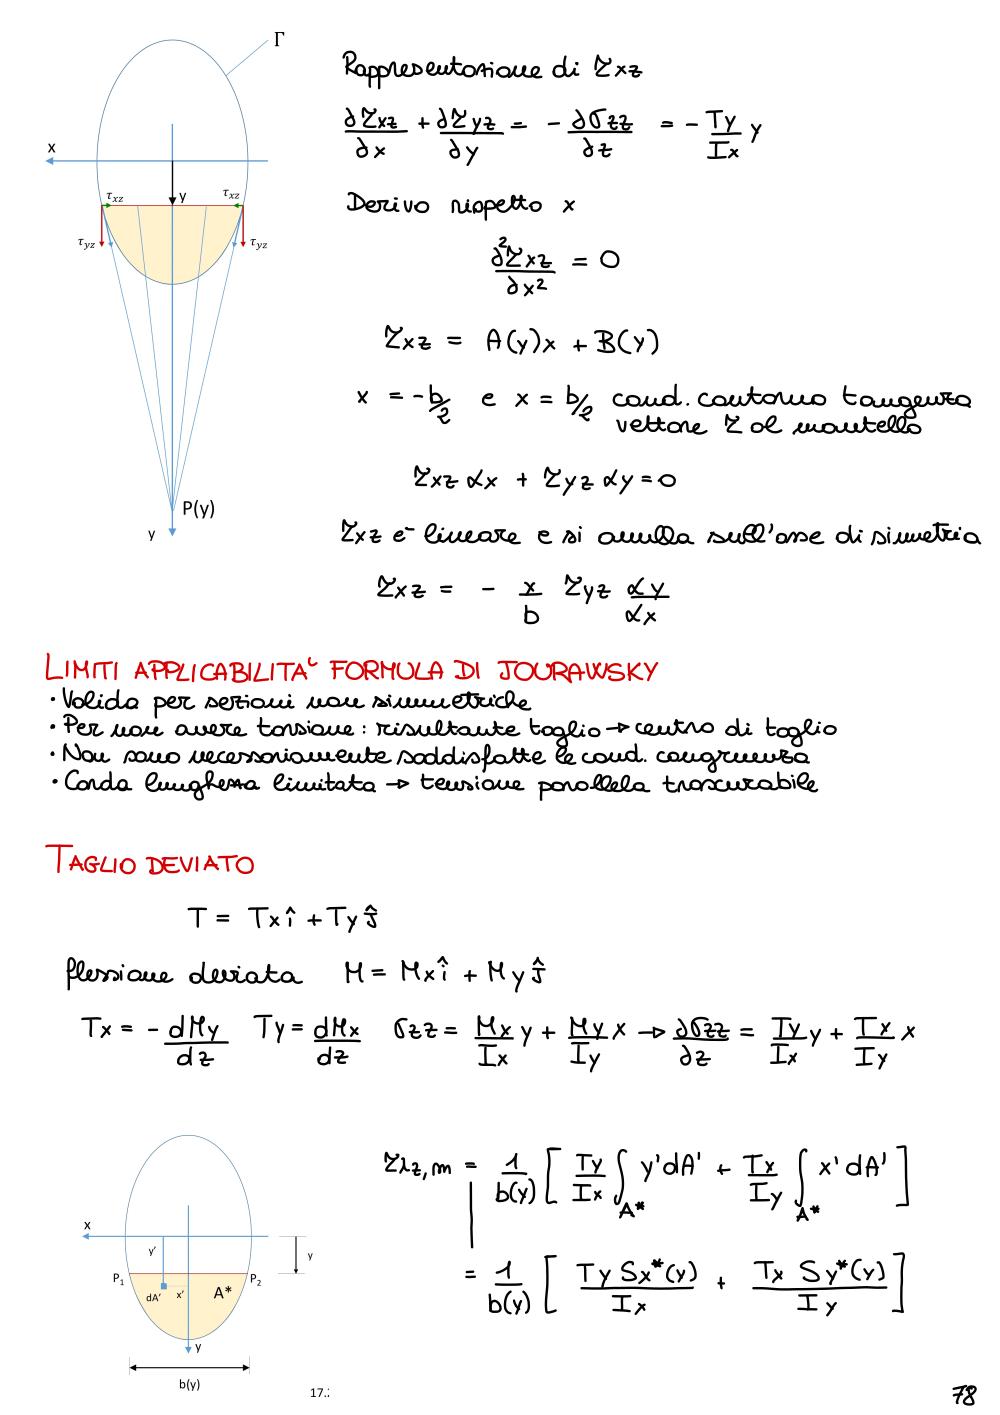 Γ
Rappresentazione di τxz
∂τxz/∂x + ∂τyz/∂y = - ∂σzz/∂z = - Ty/Ix y
x
τxz
y
τxz
τyz
τyz
Derivo rispetto x
∂²τxz/∂x² = 0
τxz = A(y)x + B(y)
x = -b/2 e x = b/2 cond. contorno tangenza
vettore τ al mantello
τxz αx + τyz αy = 0
P(y)
y
τxz è lineare e si annulla sull'asse di simmetria
τxz = - x/b τyz αy/αx
LIMITI APPLICABILITA' FORMULA DI JOURAWSKY
• Valida per sezioni non simmetriche
• Per non avere torsione : risultante taglio → centro di taglio
• Non sono necessariamente soddisfatte le cond. congruenza
• Corda lunghezza limitata → tensione parallela trascurabile
TAGLIO DEVIATO
T = Tx î + Ty ĵ
flessione deviata M = Mx î + My ĵ
Tx = - dMy/dz Ty = dMx/dz σzz = Mx/Ix y + My/Iy x → ∂σzz/∂z = Ty/Ix y + Tx/Iy x
τλz,m = 1/b(y) [ Ty/Ix ∫A* y'dA' + Tx/Iy ∫A* x'dA' ]
= 1/b(y) [ Ty Sx*(y)/Ix + Tx Sy*(y)/Iy ]
x
y'
y
P1
P2
dA'
x'
A*
y
b(y)
17.
78